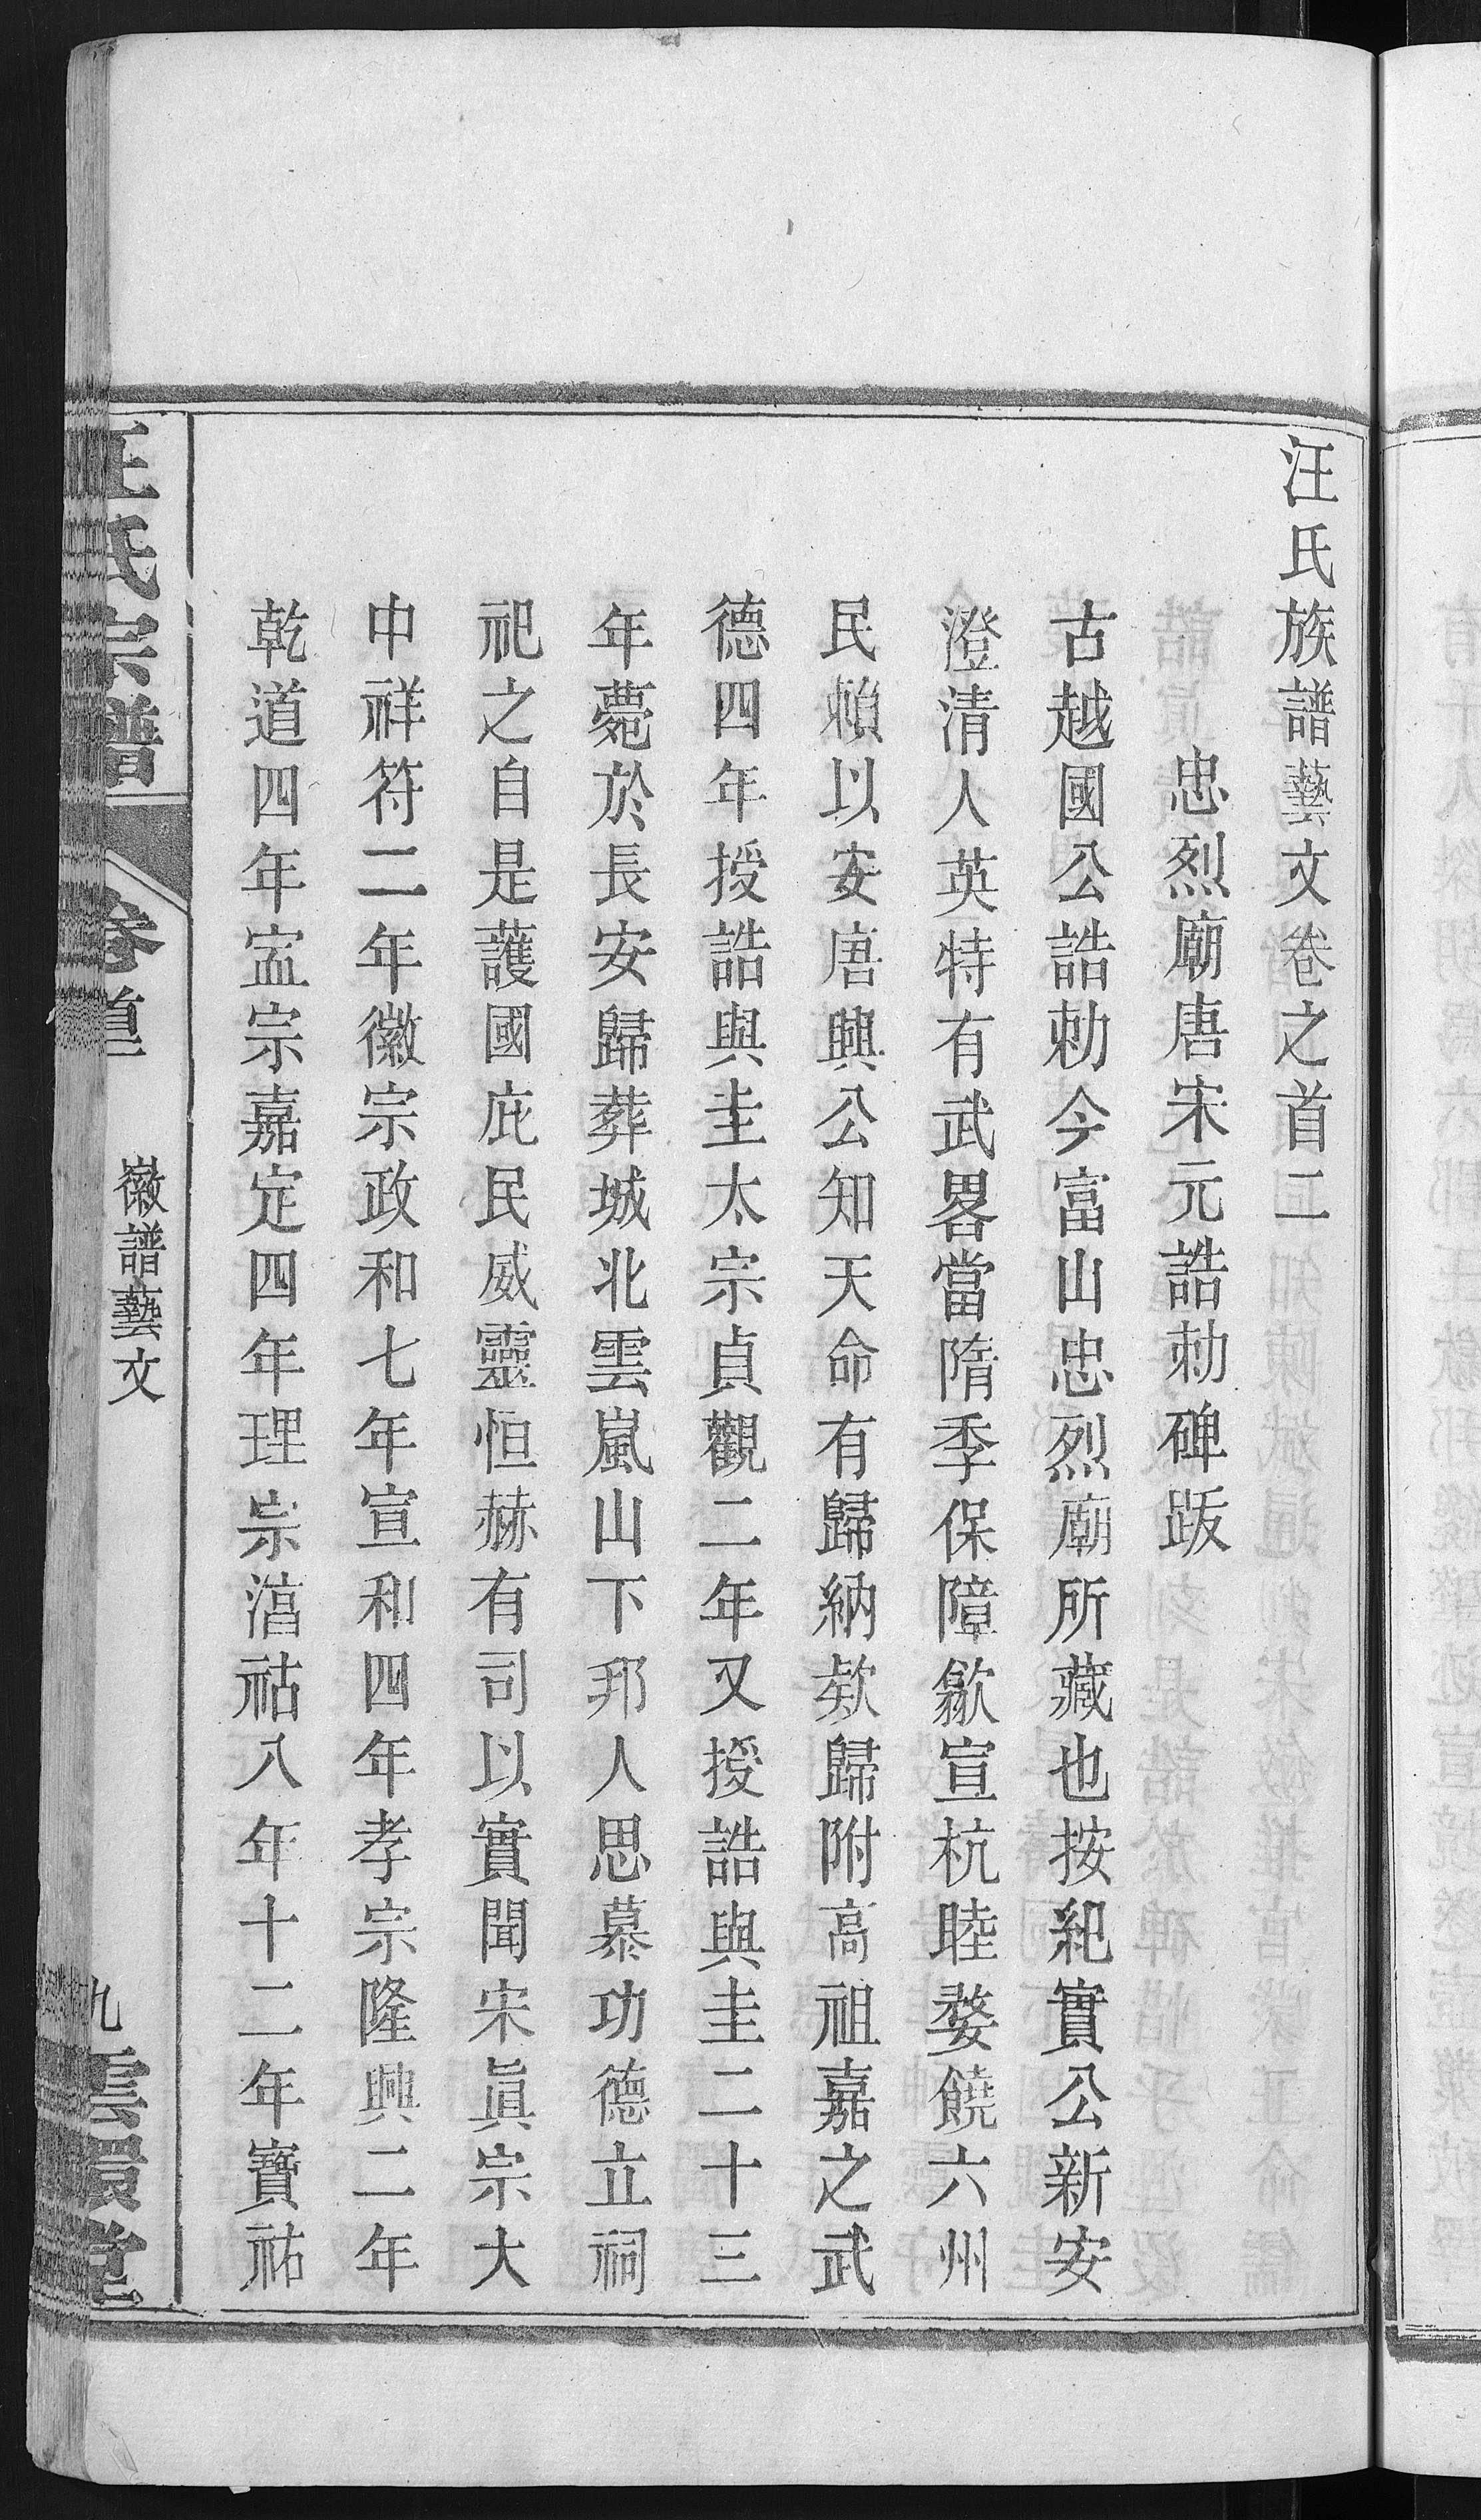 汪氏族譜藝文卷之首二
忠烈廟唐宋元誥勅碑䟦
古越國公誥勅今富山忠烈廟所藏也按紀實公新安
澄清人英特有武畧當隋季保障歙宣杭睦婺饒六州
民賴以安唐興公知天命有歸納欵歸附高祖嘉之武
德四年授誥與圭太宗貞觀二年又授誥與圭二十三
年薨於長安歸葬城北雲嵐山下邦人思慕功德立祠
祀之自是護國庇民威靈恒赫有司以實聞宋眞宗大
中祥符二年徽宗政和七年宣和四年孝宗隆興二年
乾道四年寍宗嘉定四年理宗湻祐八年十二年寶祐
汪氏宗譜
卷首
徽譜藝文
九
雲環堂